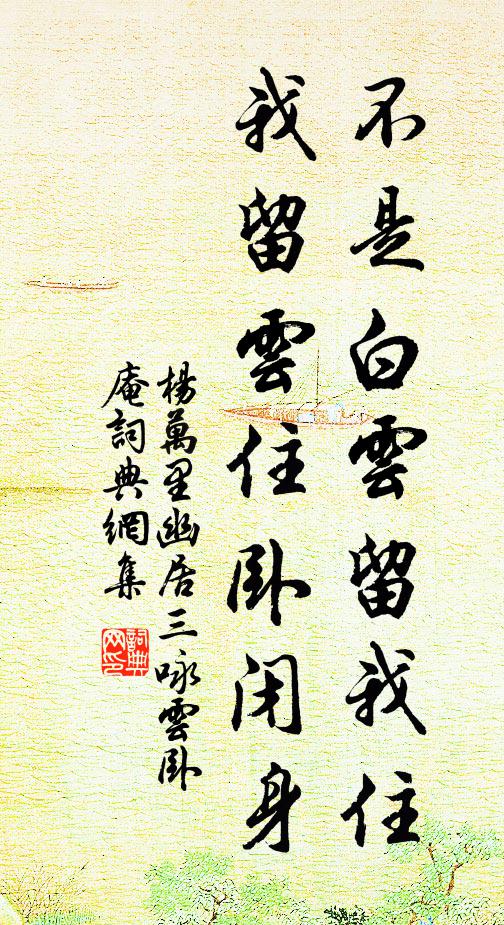 不是白雲留我住
我留雲住卧闭身
楊萬里幽居三咏雲卧
庵詞典網集
詞典
网印